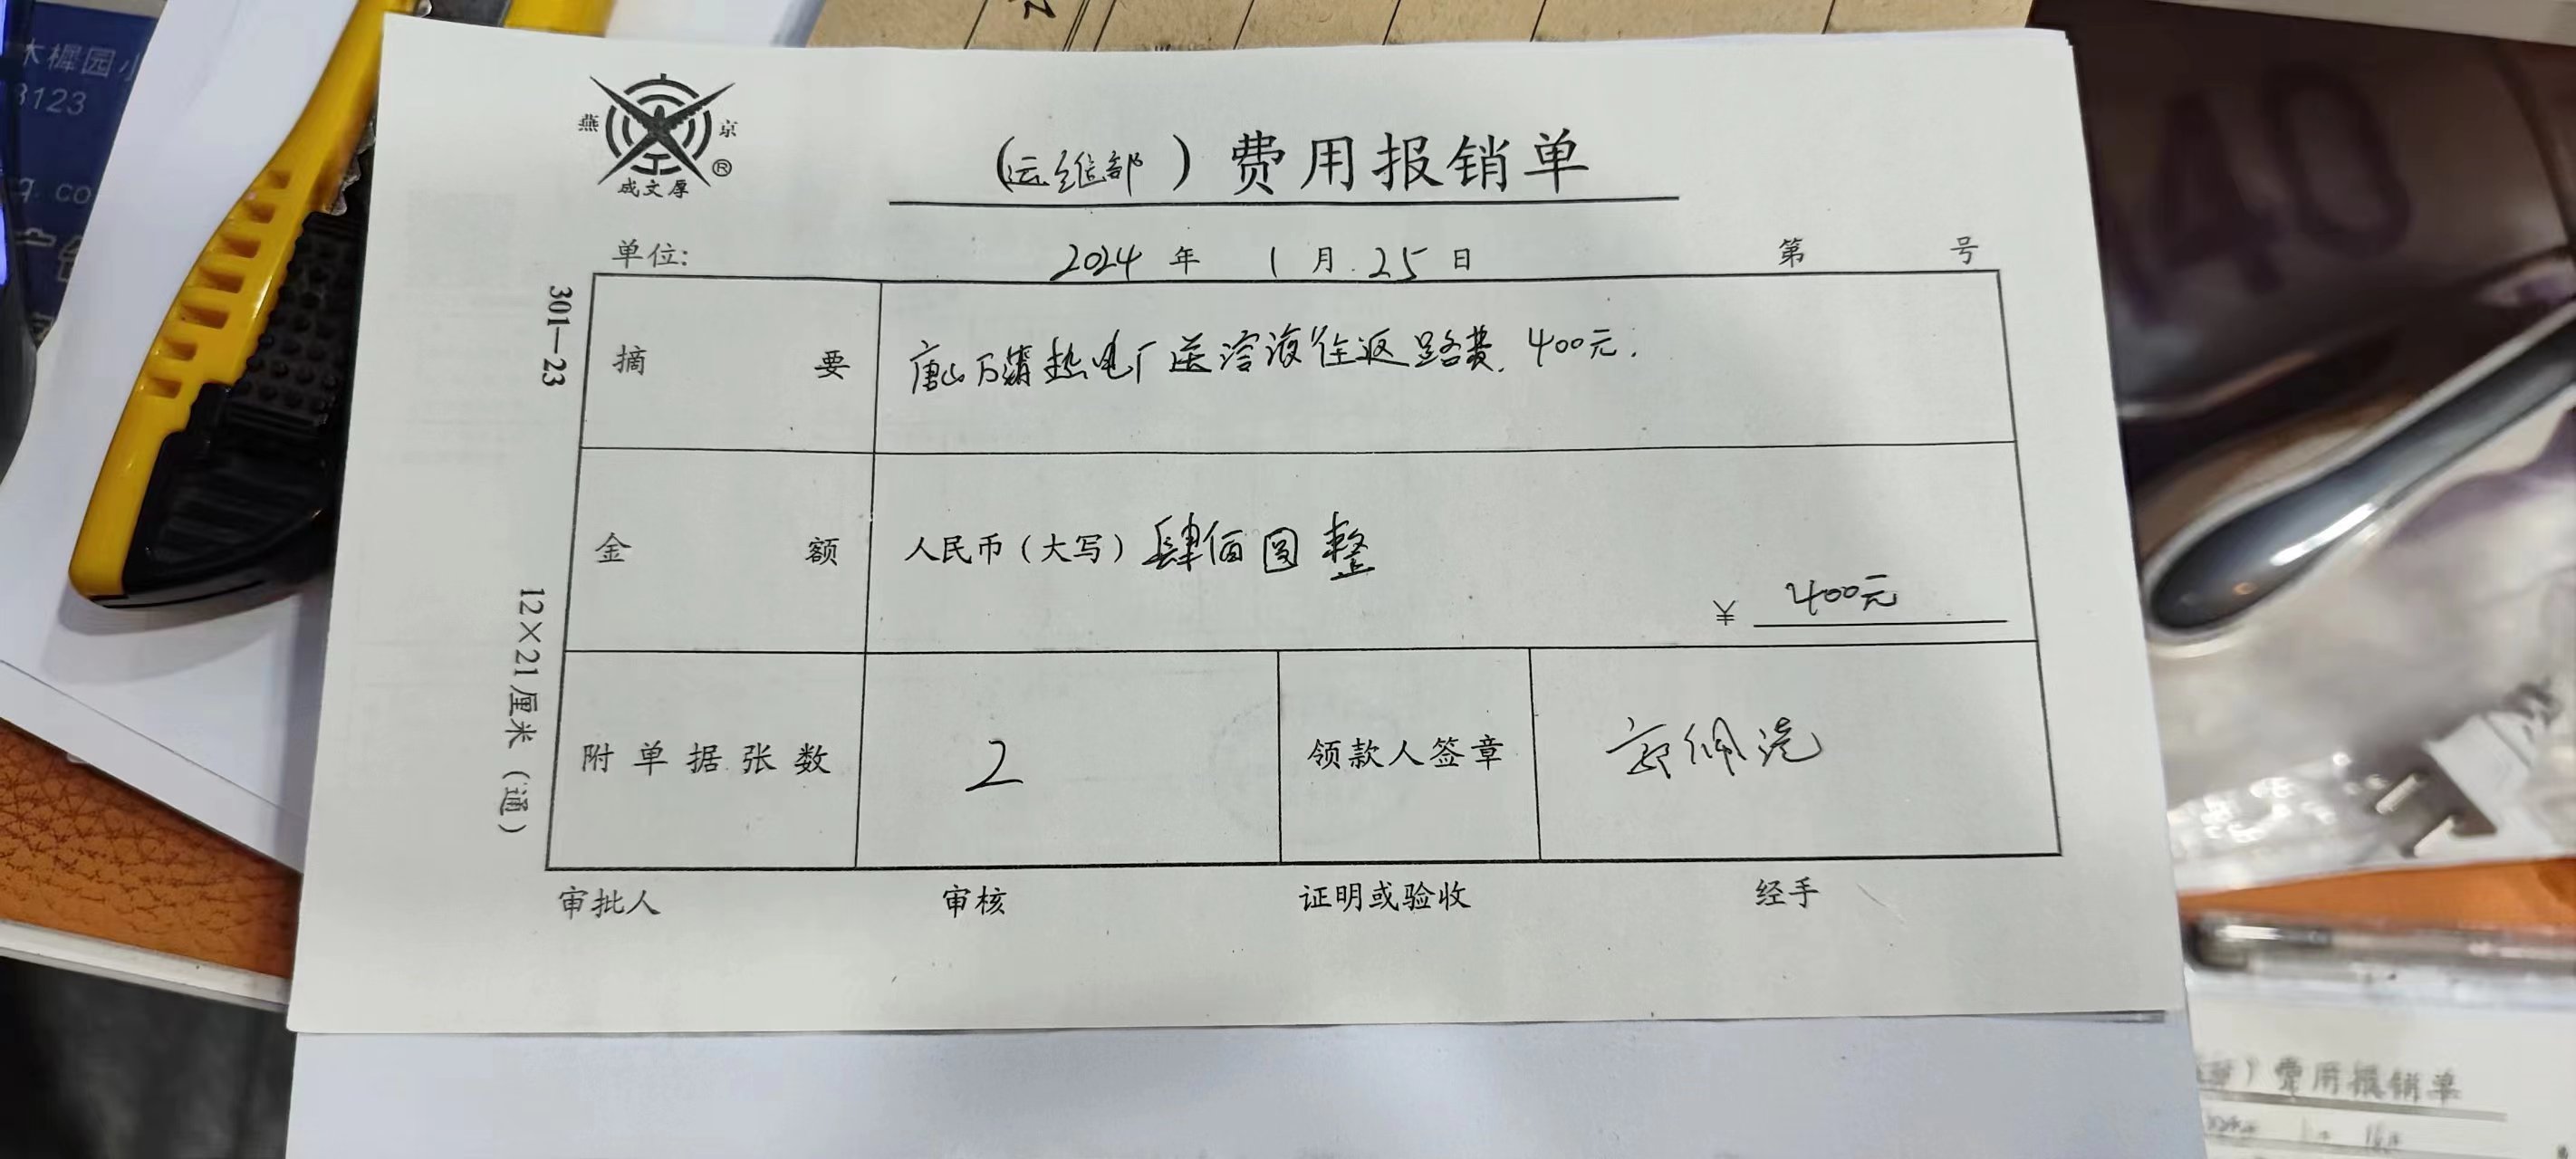 木樨园小
3123
q.co
燕 京
®
成文厚
(运维部) 费用报销单
单位: 2024 年 1 月 25 日 第 号
301—23
摘 要 唐山万浦热电厂送溶液往返路费. 400元.
金 额 人民币(大写) 肆佰圆整
¥ 400元
12×21厘米(通)
附单据张数 2 领款人签章
审批人 审核 证明或验收 经手
40
)费用报销单